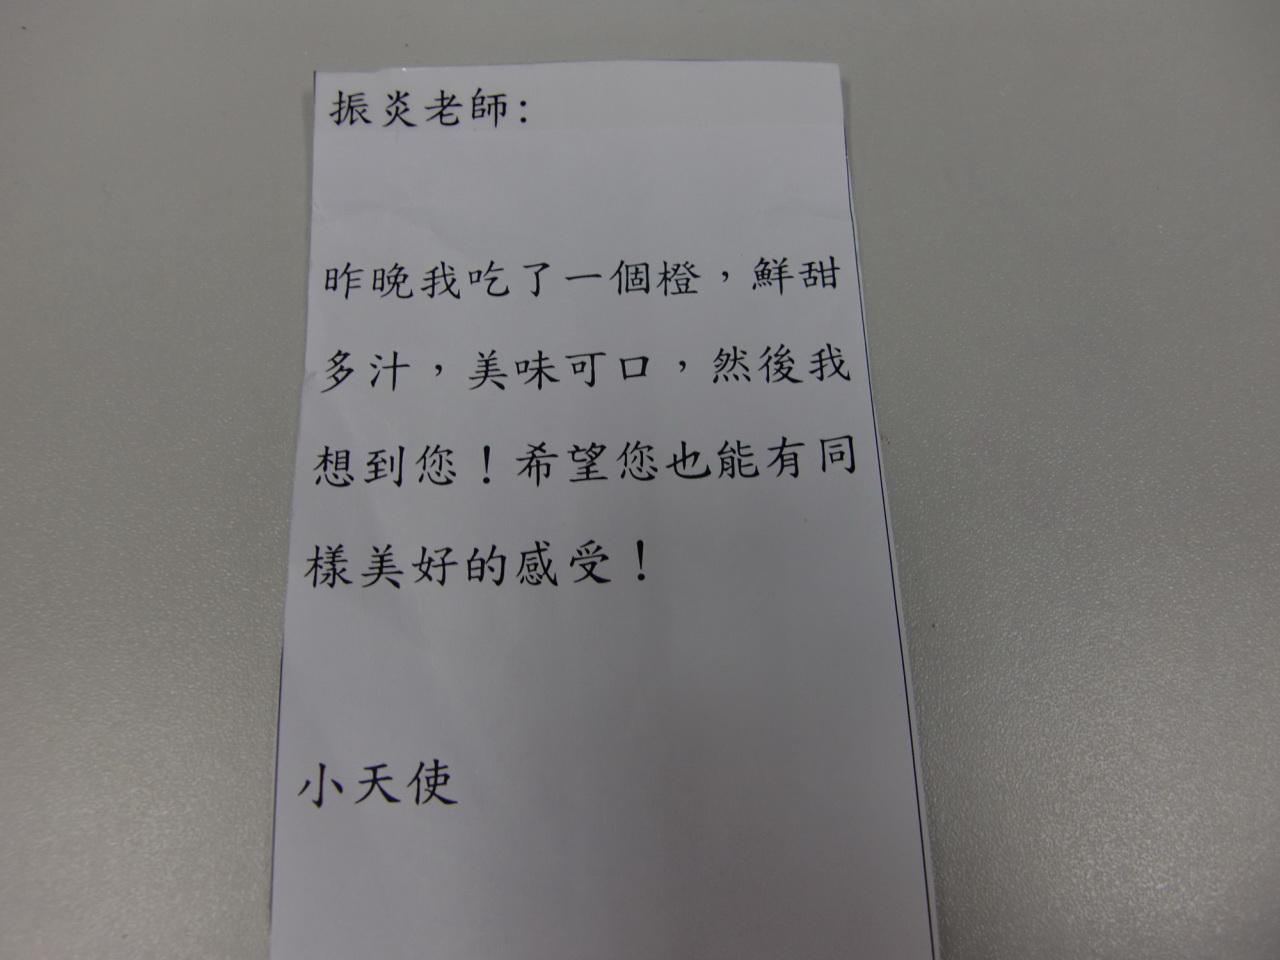 振炎老師:
昨晚我吃了一個橙，鮮甜
多汁，美味可口，然後我
想到您！希望您也能有同
樣美好的感受！
小天使